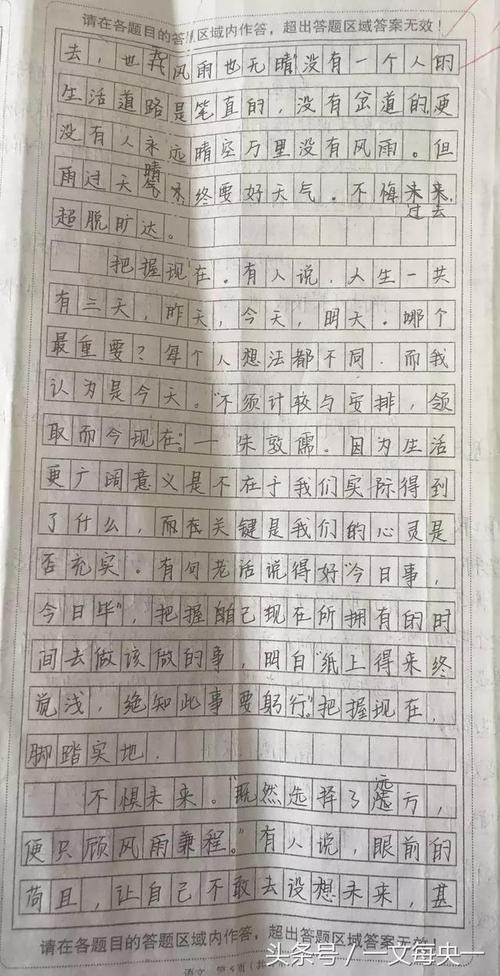 请在各题目的答题区域内作答，超出答题区域答案无效！
去，也无风雨也无晴"没有一个人的
生活道路是笔直的，没有岔道的，更
没有人永远晴空万里没有风雨。但
雨过天晴，终要好天气。不悔过去，
超脱旷达。
把握现在。有人说，人生一共
有三天，昨天，今天，明天。哪个
最重要？每个人想法都不同．而我
认为是今天。"不须计较与安排，领
取而今现在。"—朱敦儒。因为生活
更广阔意义是不在于我们实际得到
了什么，而在关键是我们的心灵是
否充实。有句老话说得好"今日事，
今日毕"，把握自己现在所拥有的时
间去做该做的事，明白"纸上得来终
觉浅，绝知此事要躬行。"把握现在，
脚踏实地．
不惧未来。"既然选择了远方，
便只顾风雨兼程。"有人说，眼前的
苟且，让自己不敢去设想未来，甚
请在各题目的答题区域内作答，超出答题区域答案无效！
语文
头条号／一文每央一